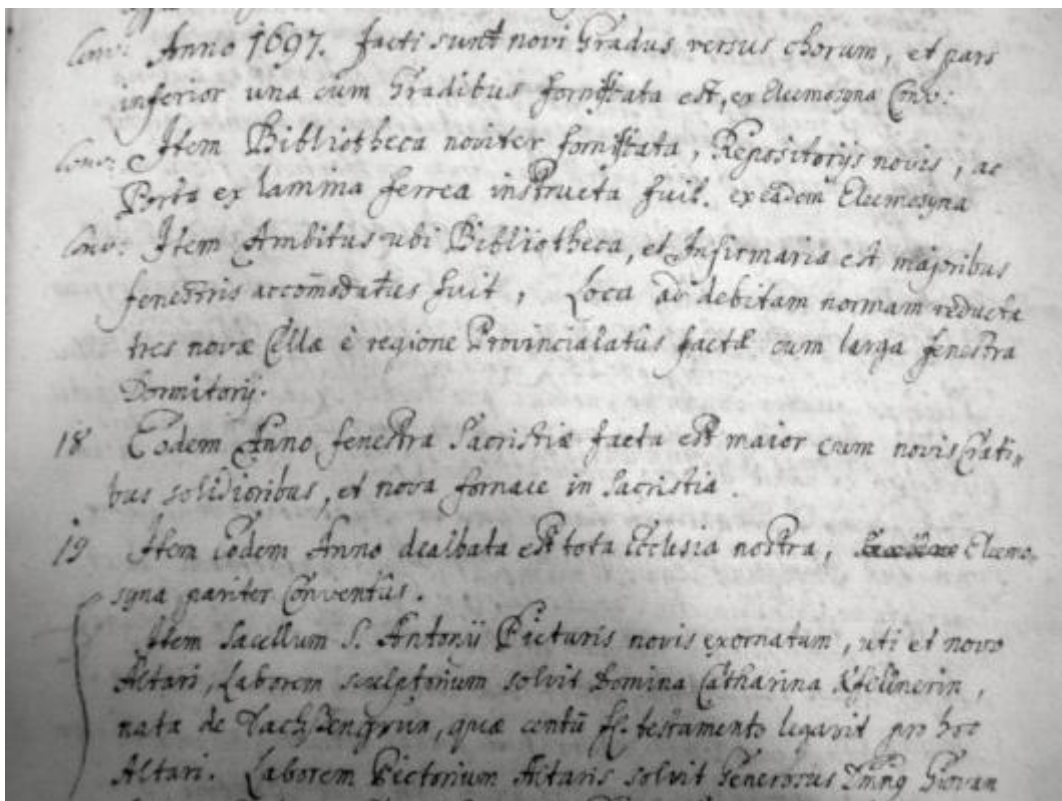 Conv: Anno 1697. facti sunt novi Gradus versus chorum, et pars
inferior una cum Gradibus est, ex Elemosyna Conv:
Conv: Item Bibliotheca noviter, Repositorijs novis, ac
Porta ex lamina ferrea instructa fuit. ex eadem Elemosyna
Conv: Item Ambitus ubi Bibliotheca, et Infirmaria est majoribus
fenestris accomodatus fuit, Loca ad debitam normam reducta
tres novæ Cellæ è regione Provincialatus factæ cum larga fenestra
Dormitorij.
18 Eodem Anno fenestra Sacristiæ facta est maior cum novis Crati-
bus solidioribus, et nova fornace in Sacristia.
19 Item Eodem Anno dealbata est tota Ecclesia nostra, Elemo-
syna pariter Conventus.
Item Sacellum S. Antonii Picturis novis exornatum, uti et novo
Altari, Laborem sculptorium solvit Domina Catharina
nata de, quæ centũ fl. testamento legavit pro hoc
Altari. Laborem Pictorium Altaris solvit Generosus Giovan